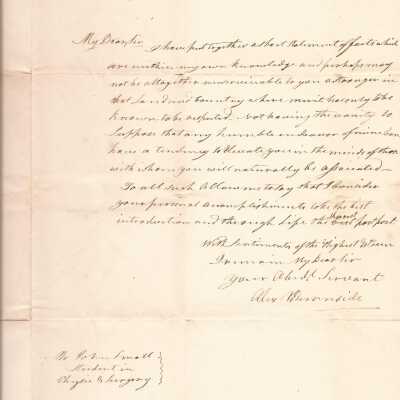 My Dear Sir I have put together a short Statement of facts which
are within my own knowledge and perhaps may
not be altogether unserviceable to you a stranger in
that Land and Country where merit has only to be
known to be respected. Not having the vanity to
suppose that any humble endeavor of mine can
have a tendency to elevate you in the minds of those
with whom you will naturally be associated —
To all such allow me to say that I consider
your personal accomplishments to be the best
introduction and through Life the surest passport
With Sentiments of the Highest Esteem
I remain My Dear Sir
Your Obedt. Servant
Alex Burnside
To Small
Student in
Physic & Surgery